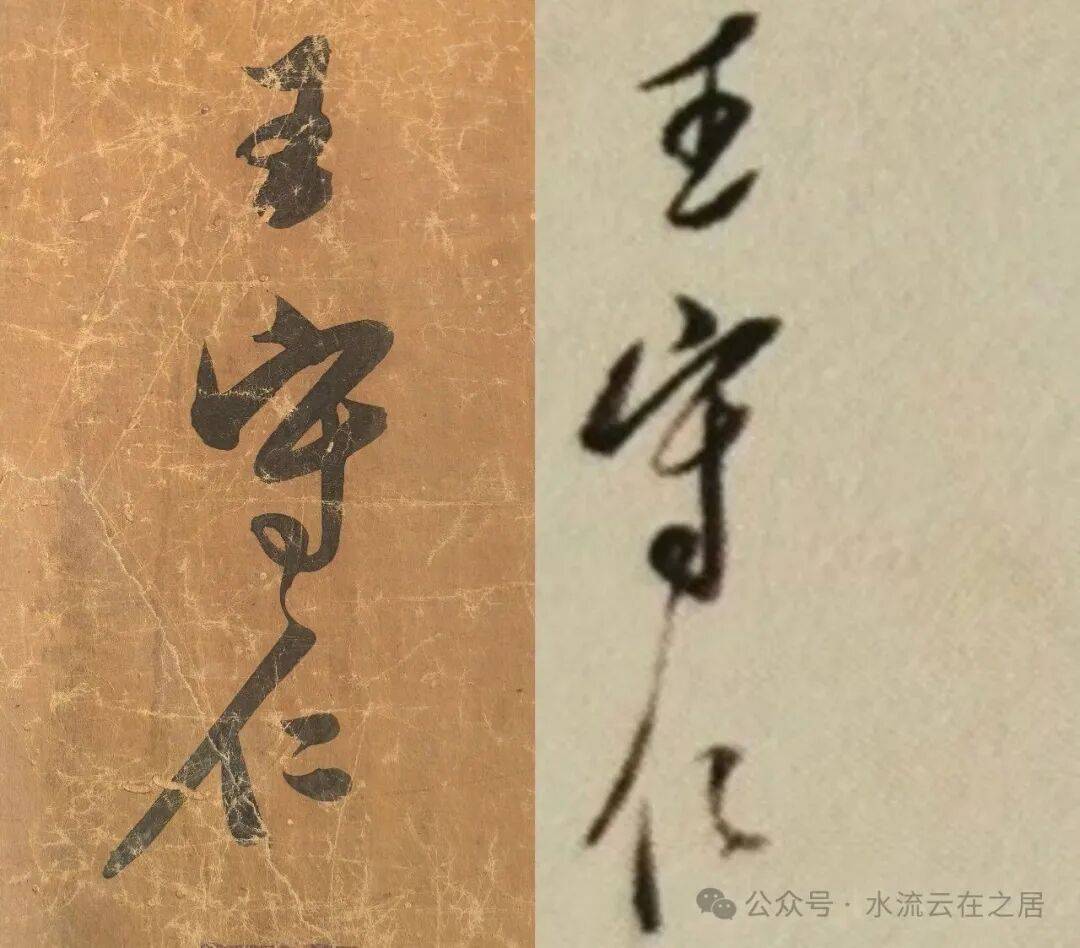 王守仁
王守仁
公众号·水流云在之居